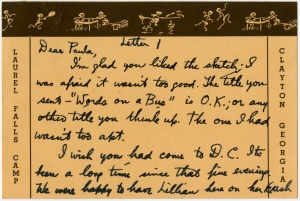 Letter 1
Dear Paula,
I'm glad you liked the sketch; I
was afraid it wasn't too good. The title you
sent — "Words on a Bus" is O.K.; or any
other title you think up. The one I had
wasn't too apt.
I wish you had come to D.C. Its
been a long time since that fine evening.
We were happy to have Lillian here on her
LAUREL FALLS CAMP
CLAYTON GEORGIA